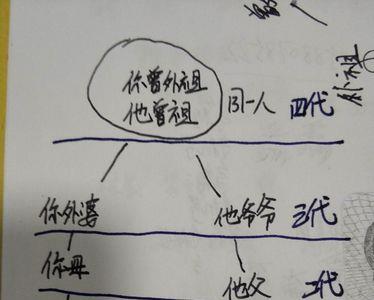 你曾外祖
他曾祖
同一人 四代
外祖
你外婆 他爷爷 三代
你母 他父 二代